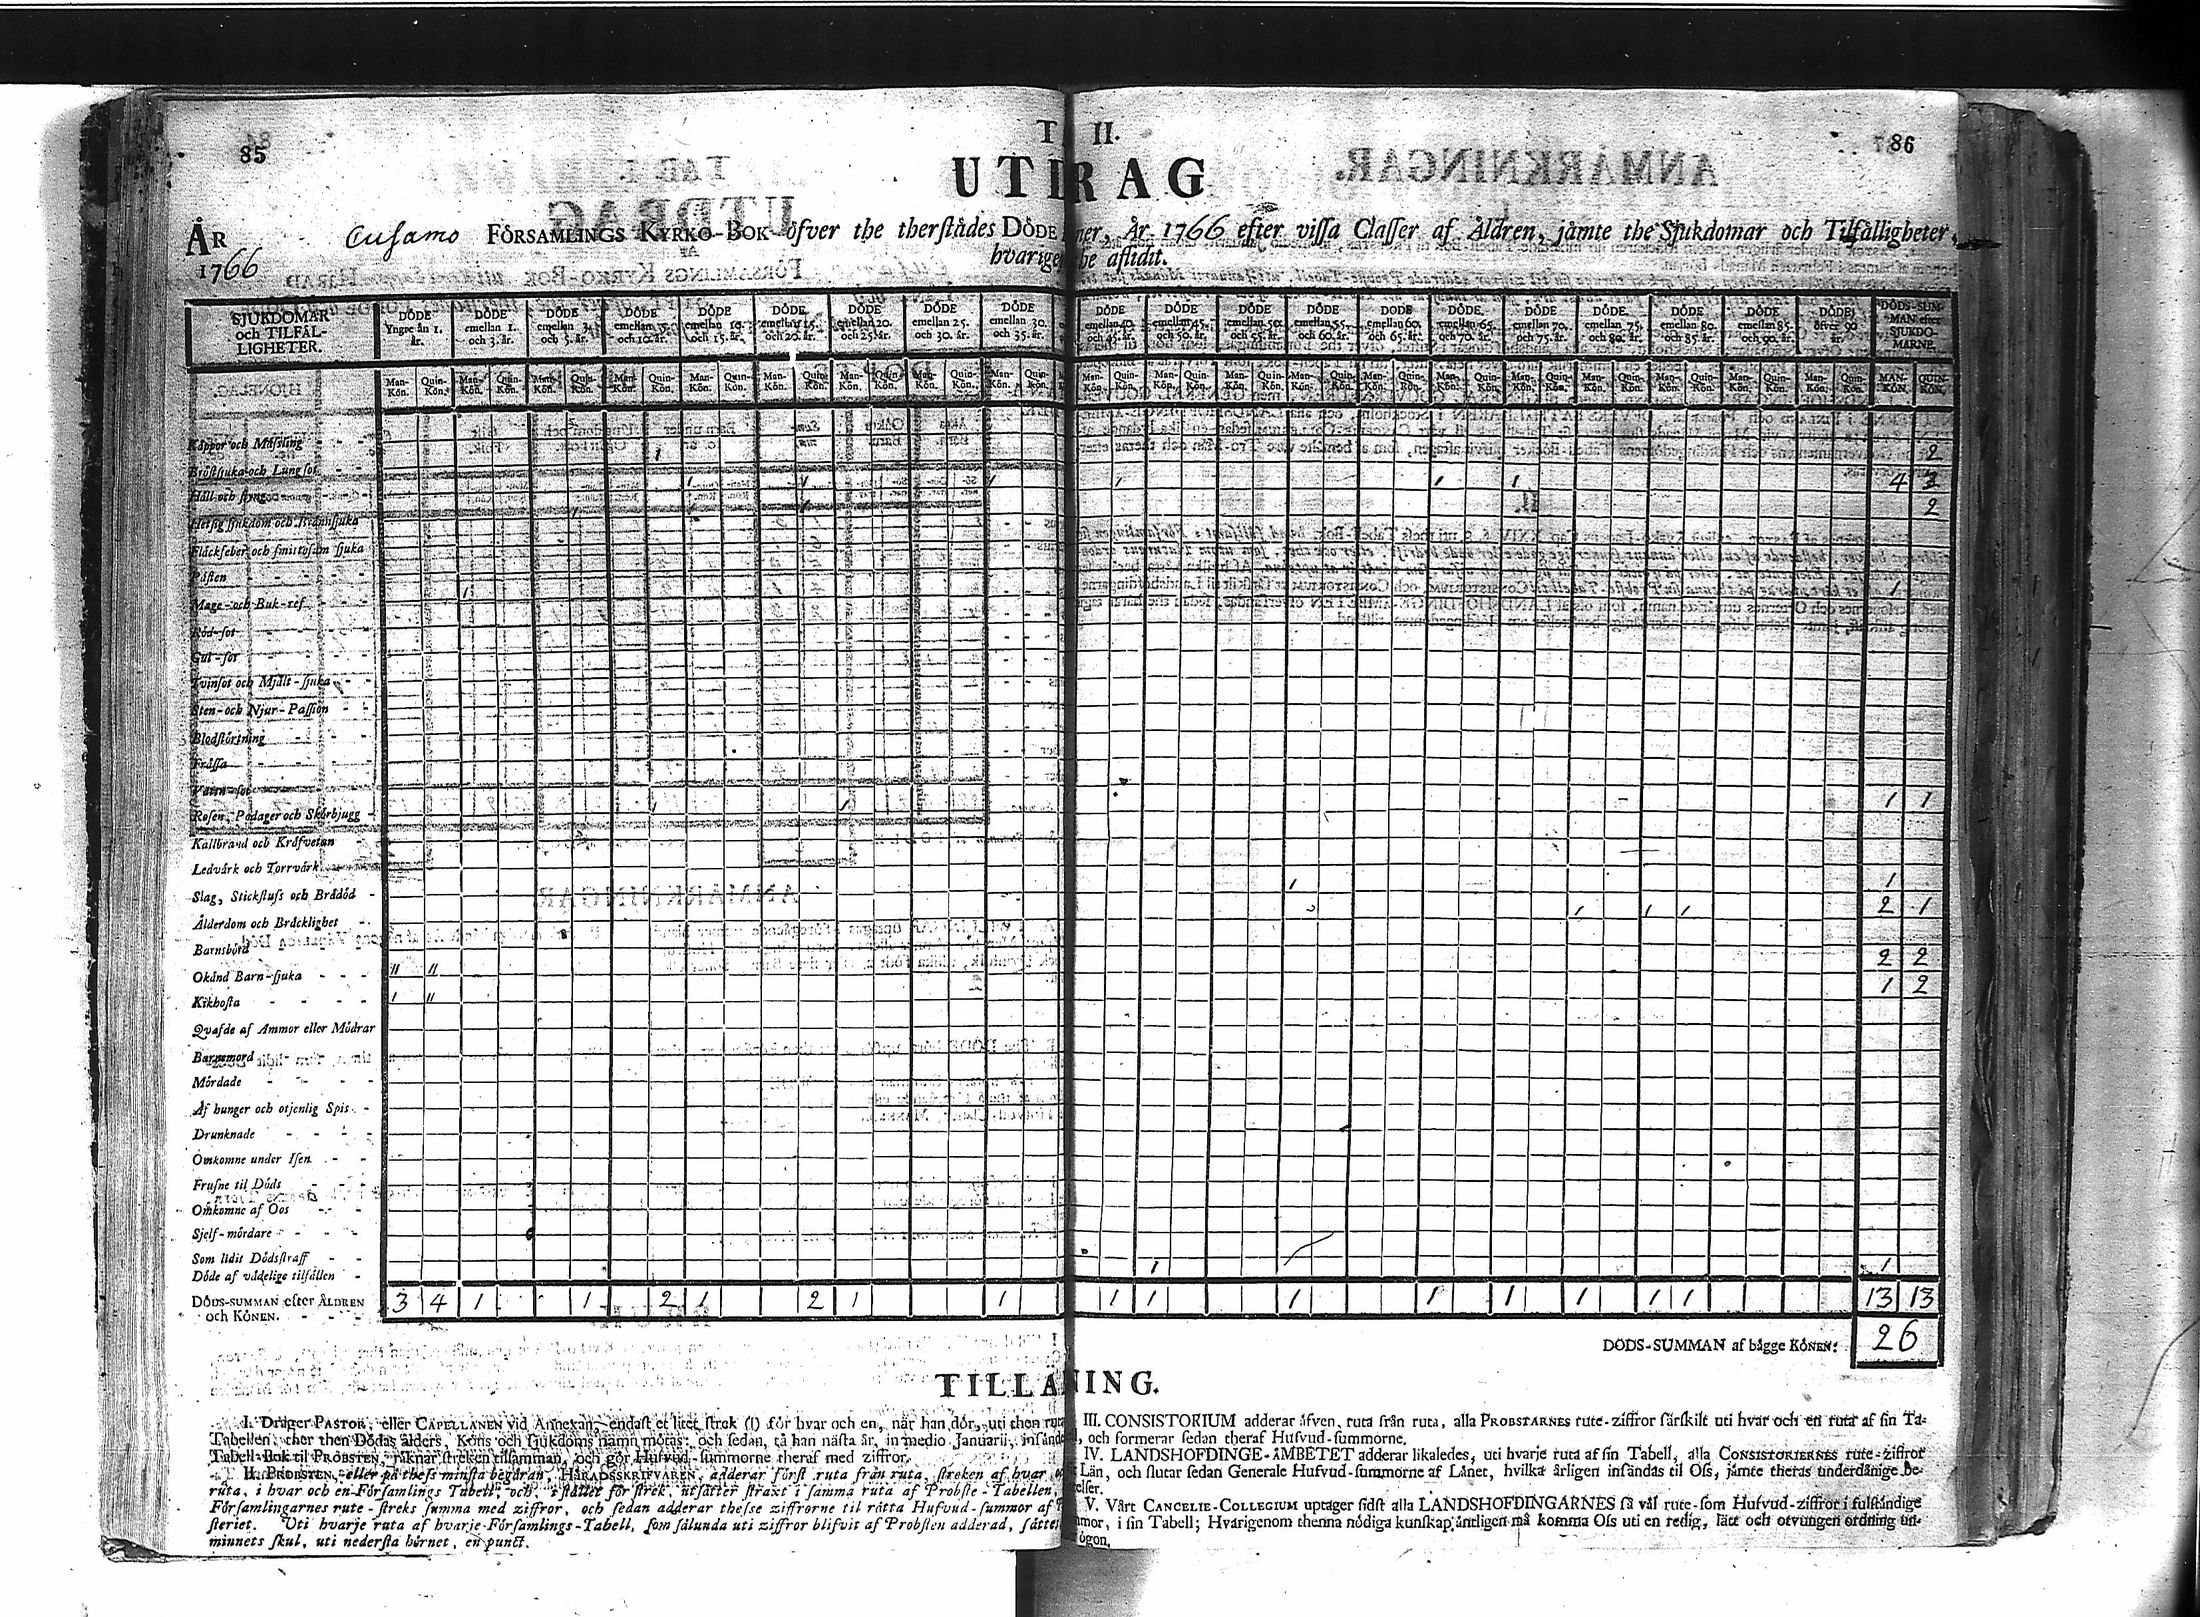 85
86
T II.
UTDRAG
ÅR 1766
Cusamo FÖRSAMLINGS KYRKO-BOK öfver the therstädes DÖDE ner, År 1766 efter vissa Classer af Åldren, jämte the Sjukdomar och Tilfälligheter,
hvarige he aflidit.
SJUKDOMAR och TILFÄLLIGHETER.
DÖDE Yngre än 1. år.
DÖDE emellan 1. och 3. år.
DÖDE emellan 3. och 5. år.
DÖDE emellan 5. och 10. år.
DÖDE emellan 10. och 15. år.
DÖDE emellan 15. och 20. år.
DÖDE emellan 20. och 25. år.
DÖDE emellan 25. och 30. år.
DÖDE emellan 30. och 35. år.
DÖDE emellan 40. och 45. år.
DÖDE emellan 45. och 50. år.
DÖDE emellan 50. och 55. år.
DÖDE emellan 55. och 60. år.
DÖDE emellan 60. och 65. år.
DÖDE emellan 65. och 70. år.
DÖDE emellan 70. och 75. år.
DÖDE emellan 75. och 80. år.
DÖDE emellan 80. och 85. år.
DÖDE emellan 85. och 90. år.
DÖDE öfver 90 år.
DÖDS-SUMMAN efter SJUKDOMARNE.
Man-Kön. Quin-Kön.
MAN-KÖN. QUIN-KÖN.
Kåppor och Måssling
Bröstsjuka och Lungsot 1 2
Håll och styng 1 1 1 1 1 1 4 3
Hetsig sjukdom och Brännsjuka 1 1 1 2
Fläckfeber och smittosam sjuka
Pästen
Mage- och Buk-ref 1 1
Röd-sot
Gul-sot
Tvinsot och Mjält-sjuka
Sten- och Njur-Passion
Blodstörtning
Frässa
Vattn-sot
Rosen, Podager och Skörbjugg 1 1 1 1
Kallbrand och Kräfvetan
Ledvärk och Torrvärk
Slag, Stickfluss och Brådöd 1 1
Ålderdom och Bräcklighet 1 1 1 2 1
Barnsbörd
Okänd Barn-sjuka 11 11 2 2
Kikhosta 1 11 1 2
Qvafde af Ammor eller Mödrar
Barnamord
Mördade
Af hunger och otjenlig Spis
Drunknade
Omkomne under Isen
Frusne til Döds
Omkomne af Oos
Sjelf-mördare
Som lidit Dödsstraff
Döde af vådelige tilfällen 1 1
DÖDS-SUMMAN efter ÅLDREN och KÖNEN. 3 4 1 1 2 1 2 1 1 1 1 1 1 1 1 1 1 13 13
DÖDS-SUMMAN af bägge KÖNEN: 26
TILLÄ NING.
I. Drager PASTOR, eller CAPELLANEN vid Annexan, endast et litet strek (l) för hvar och en, når han dör, uti then ruta
Tabellen, ther then Dödas ålders, Köns och sjukdoms namn mötas: och sedan, tå han nästa år, in medio Januarii, insände
Tabell-Bok til PROBSTEN, räknar streken tilsamman, och gör Hufvud-summorne theraf med ziffror.
II. PROBSTEN, eller på thess minsta begäran, HÄRADSSKRIFVAREN, adderar först ruta från ruta, streken af hvar
ruta, i hvar och en Församlings Tabell, och, i stället för strek, utsätter straxt i samma ruta af Probste-Tabellen,
Församlingarnes rute-streks summa med ziffror, och sedan adderar thesse ziffrorne til rätta Hufvud-summor af P
steriet. Uti hvarje ruta af hvarje Församlings-Tabell, som sålunda uti ziffror blifvit af Probsten adderad, sätte
minnets skul, uti nedersta hörnet, en punct.
III. CONSISTORIUM adderar äfven, ruta från ruta, alla PROBSTARNES rute-ziffror särskilt uti hvar och en ruta af sin Ta-
, och formerar sedan theraf Hufvud-summorne.
IV. LANDSHÖFDINGE-ÄMBETET adderar likaledes, uti hvarje ruta af sin Tabell, alla CONSISTORIERNES rute-ziffror
Län, och slutar sedan Generale Hufvud-summorne af Länet, hvilka årligen insändas til Oss, jämte theras underdånige be-
elser.
V. Vårt CANCELIE-COLLEGIUM uptager sidst alla LANDSHÖFDINGARNES så väl rute- som Hufvud-ziffror i fulständige
mor, i sin Tabell; Hvarigenom thenna nödiga kunskap äntligen må komma Oss uti en redig, lätt och otvungen ordning un-
ögon.